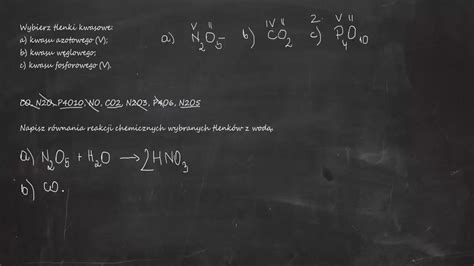 Wybierz tlenki kwasowe:
a) kwasu azotowego (V);
b) kwasu węglowego;
c) kwasu fosforowego (V).
a) N₂O₅ b) CO₂ c) P₄O₁₀
V II IV II 2. V II
CO, N2O, P4O10, NO, CO2, N2O3, P4O6, N2O5
Napisz równania reakcji chemicznych wybranych tlenków z wodą.
a) N₂O₅ + H₂O → 2HNO₃
b) CO.